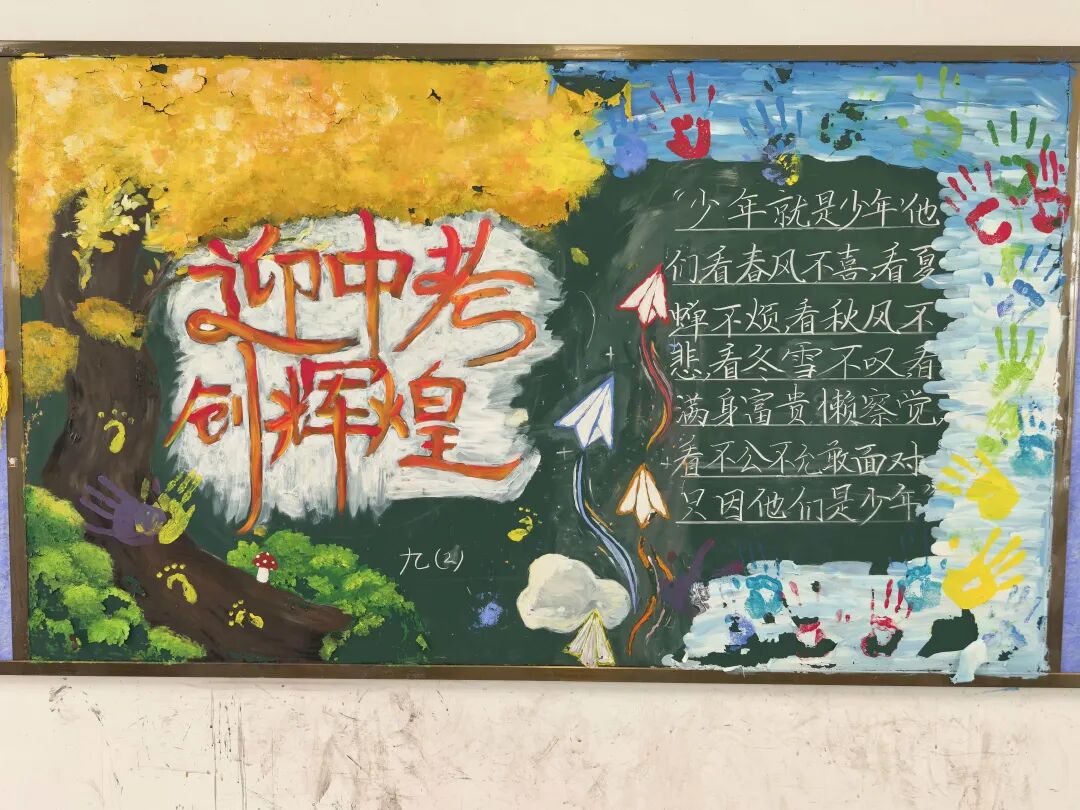 迎中考
创辉煌
九(2)
"少年就是少年,他
们看春风不喜,看夏
蝉不烦,看秋风不
悲,看冬雪不叹,看
满身富贵懒察觉,
看不公不允敢面对
只因他们是少年"